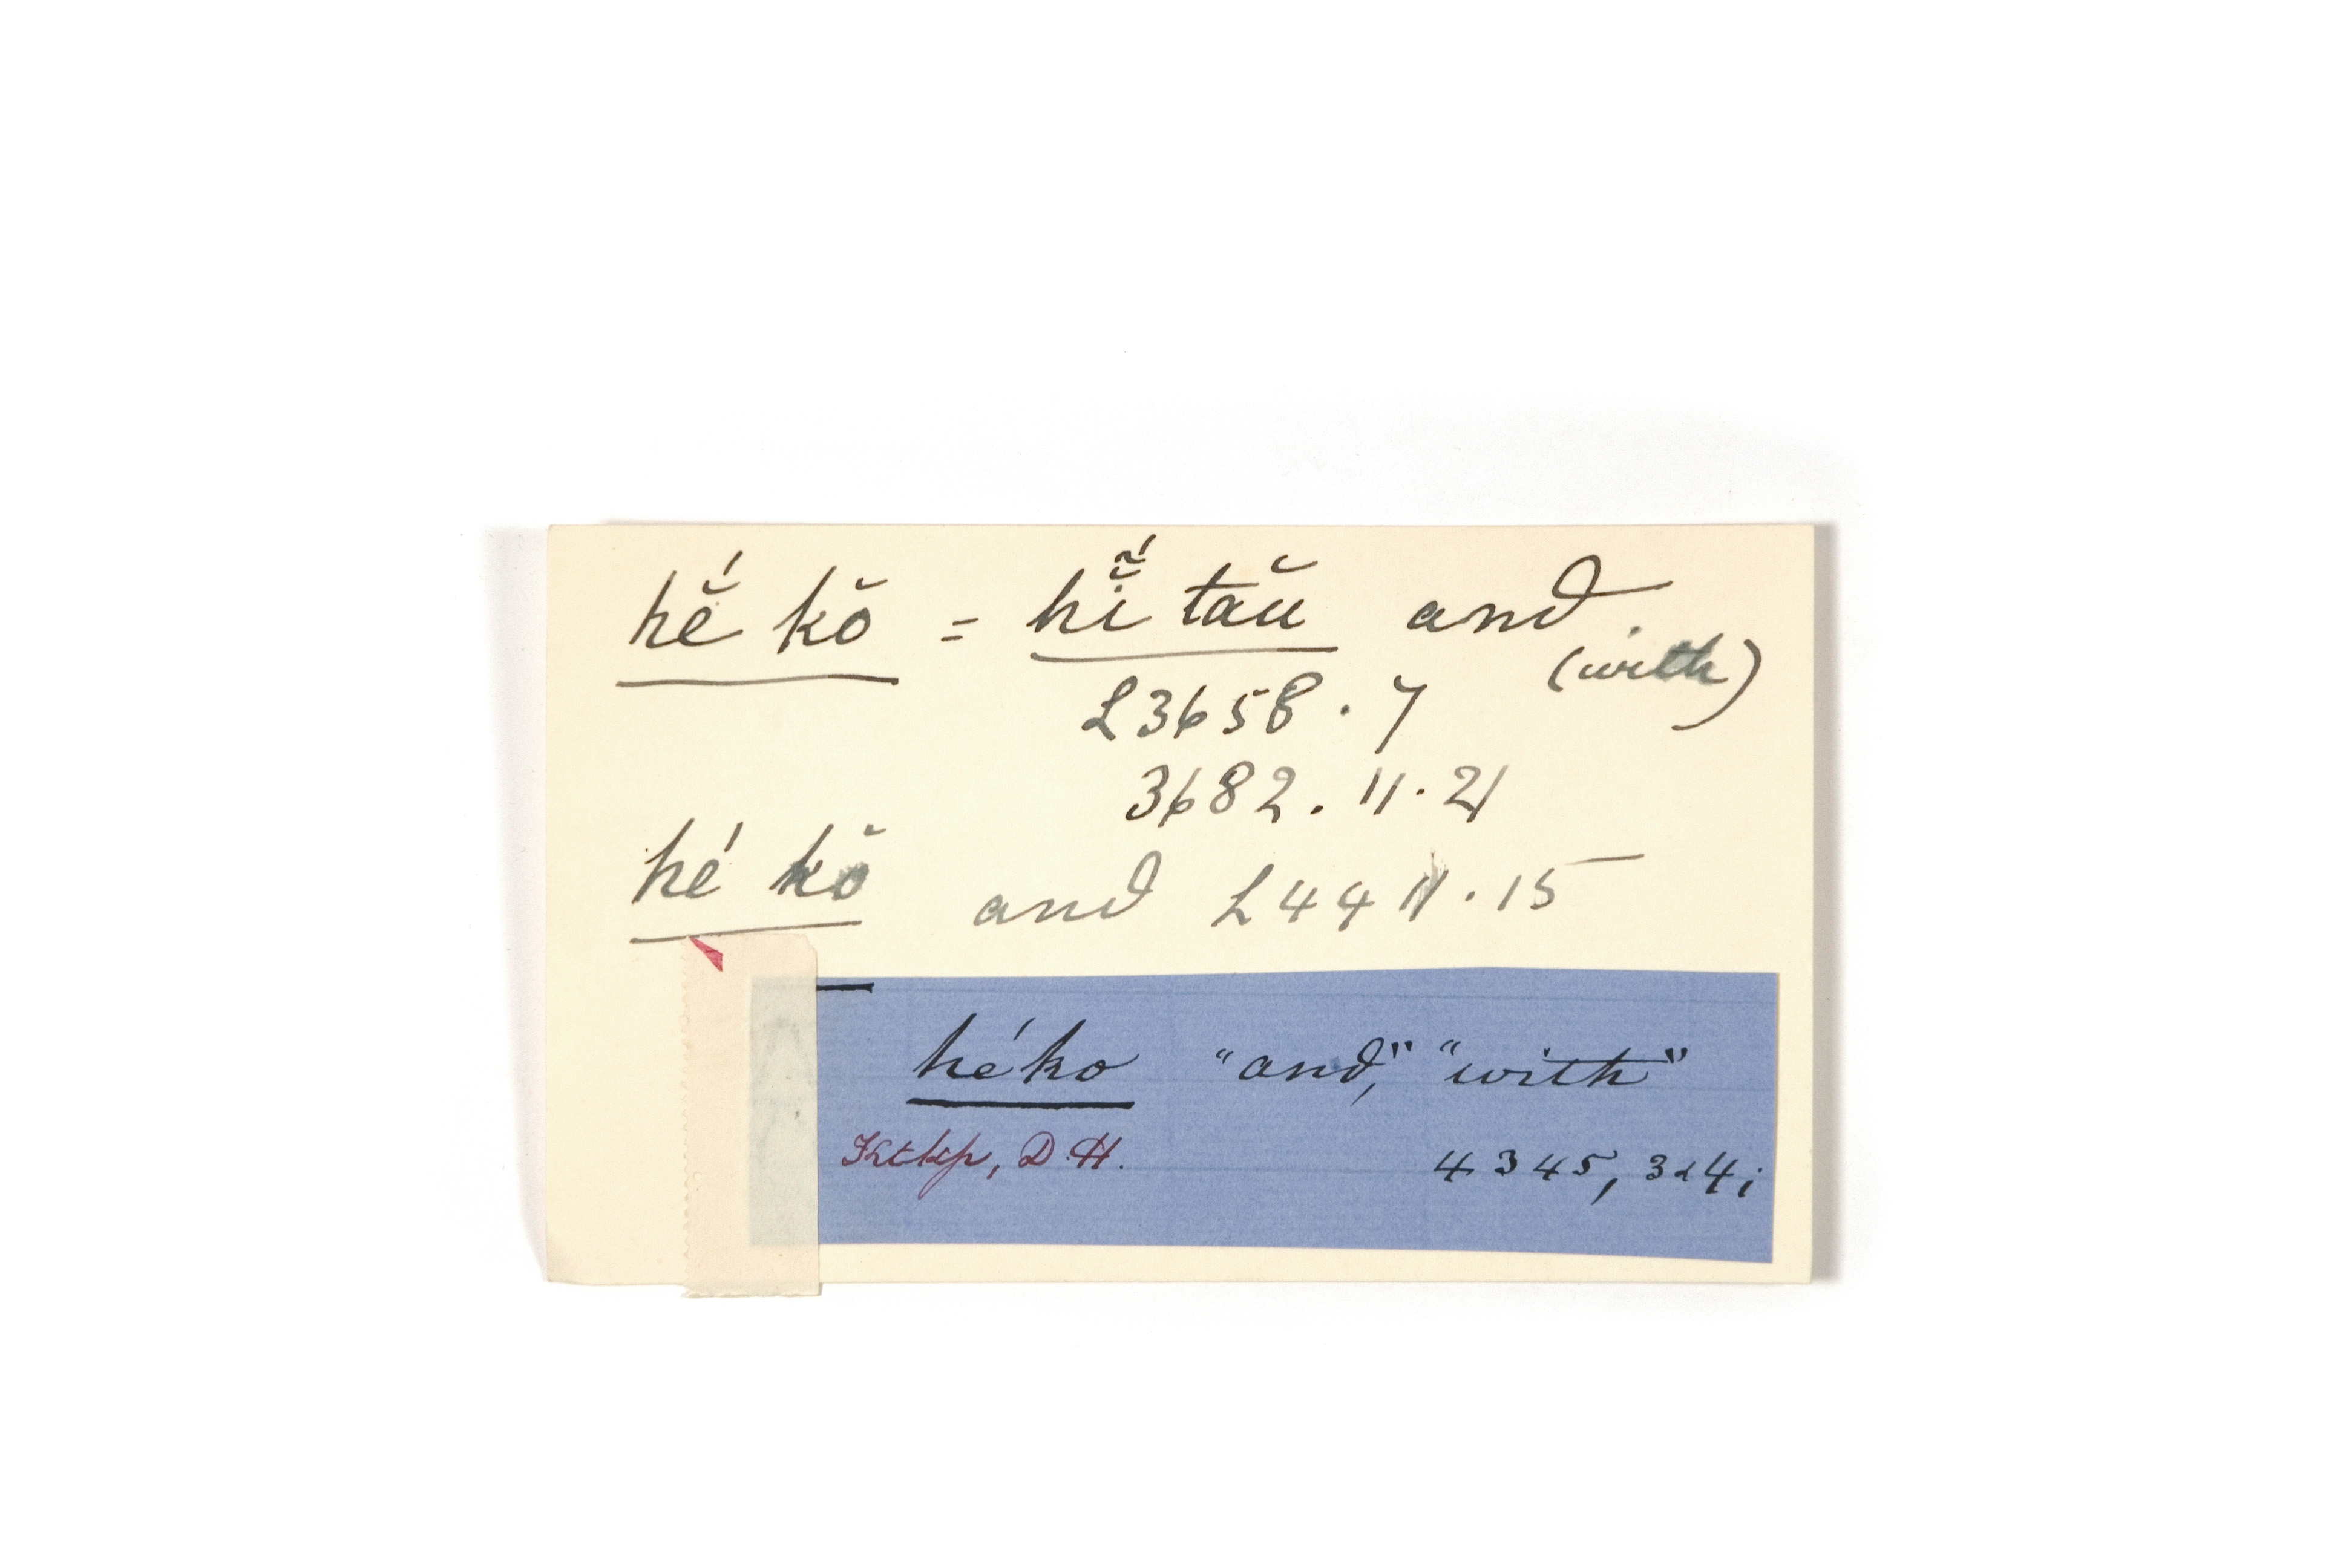 hĕ́ kŏ = hĭ̃́ tău and
(with)
L3658.7
3682.11.21
hé kŏ and L4411.15
héko "and," "with"
Ktkp, D.H. 4345, 3&4;